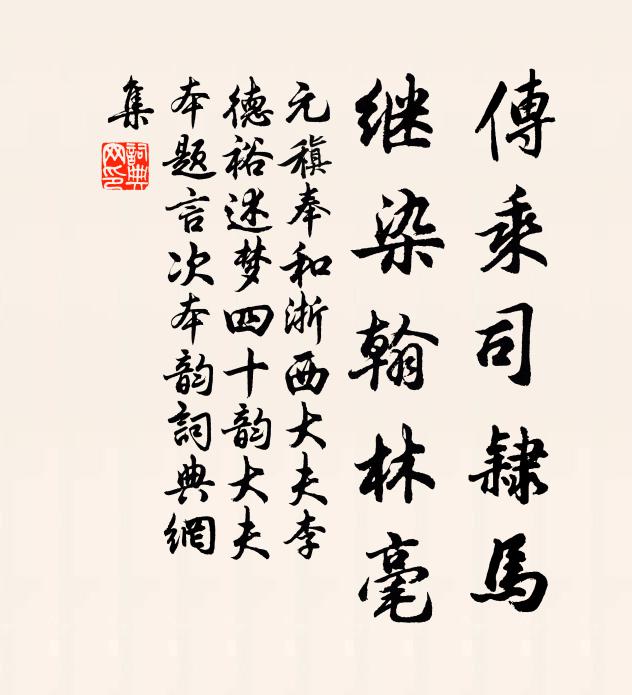 傳乘司隸馬
继染翰林毫
元稹奉和浙西大夫李
德裕述梦四十韵大夫
本题言次本韵詞典網
集
詞典
网印